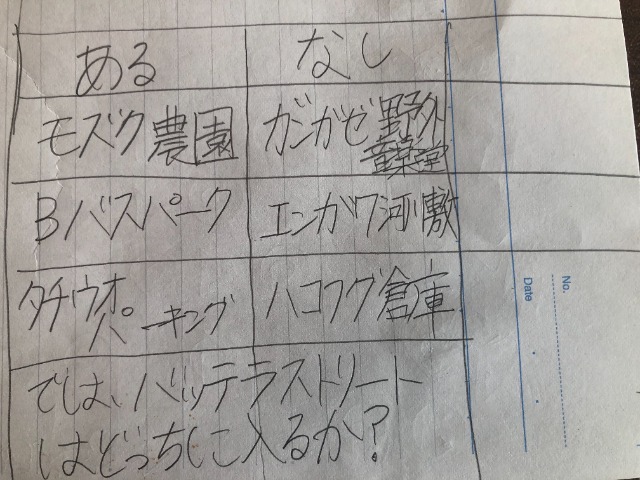 ある なし
モズク農園 ガンガゼ野外音楽堂
Bバスパーク エンガワ河川敷
タチウオパーキング ハコフグ倉庫
では、バッテラストリート
はどっちに入るか?
No.
Date